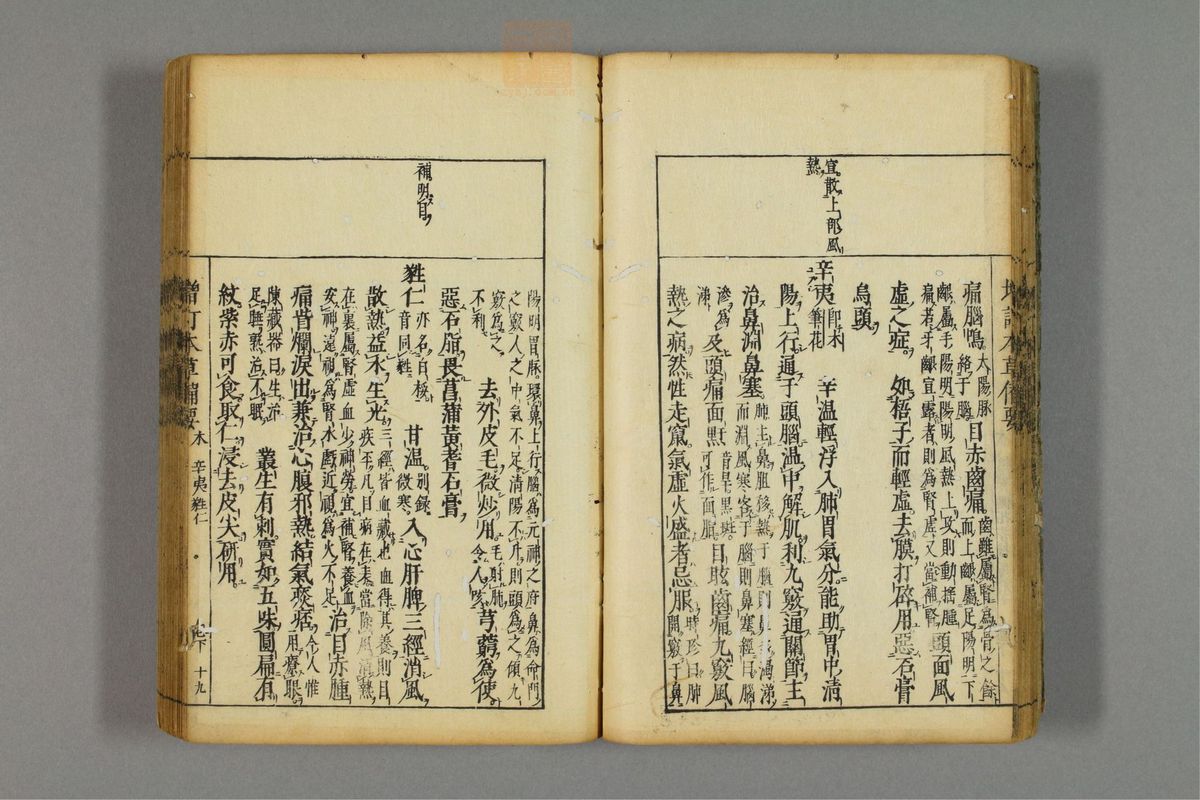 宜散上部風
熱
痛腦鳴太陽脉絡于腦目赤齒痛齒雖屬腎爲骨之餘而上齦屬足陽明下
齦屬手陽明陽明風熱上攻則動搖腫痛若牙齦宣露者則爲腎虛又當補腎頭面風
虛之症如梧子而輕虛去膜打碎用惡石膏
烏頭
辛夷即木筆花 辛温輕浮入肺胃氣分能助胃中清
陽上行通于頭腦温中解肌利九竅通關節主
治鼻淵鼻塞肺主鼻膽移熱于腦則鼻多濁涕而淵風寒客于腦則鼻塞經曰腦
滲爲涕及頭痛面䵟音旱黑斑可作面脂目眩齒痛九竅風
熱之病然性走竄氣虛火盛者忌服時珍曰肺開竅于鼻
補明目
陽明胃脉環鼻上行腦爲元神之府鼻爲命門之竅人之中氣不足清陽不升則頭爲之傾九
竅爲之不利去外皮毛微炒用毛射肺令人咳芎藭爲使
惡石脂畏菖蒲黃耆石膏
蕤仁亦名白桵音同蕤 甘温别錄微寒入心肝脾三經消風
散熱益水生光三經皆血藏也血得其養則目疾平凡目病在表當除風清熱
在裏屬腎虛血少神勞宜補腎養血安神遠視爲腎水虧近視爲火不足治目赤腫
痛眥爛淚出兼治心腹邪熱結氣痰痞今人惟用療眼
陳藏器曰生治足睡熟治不眠叢生有刺實如五味圓扁有
紋紫赤可食取仁浸去皮尖研用
增訂本草備要 木 辛夷蕤仁 卷下 十九